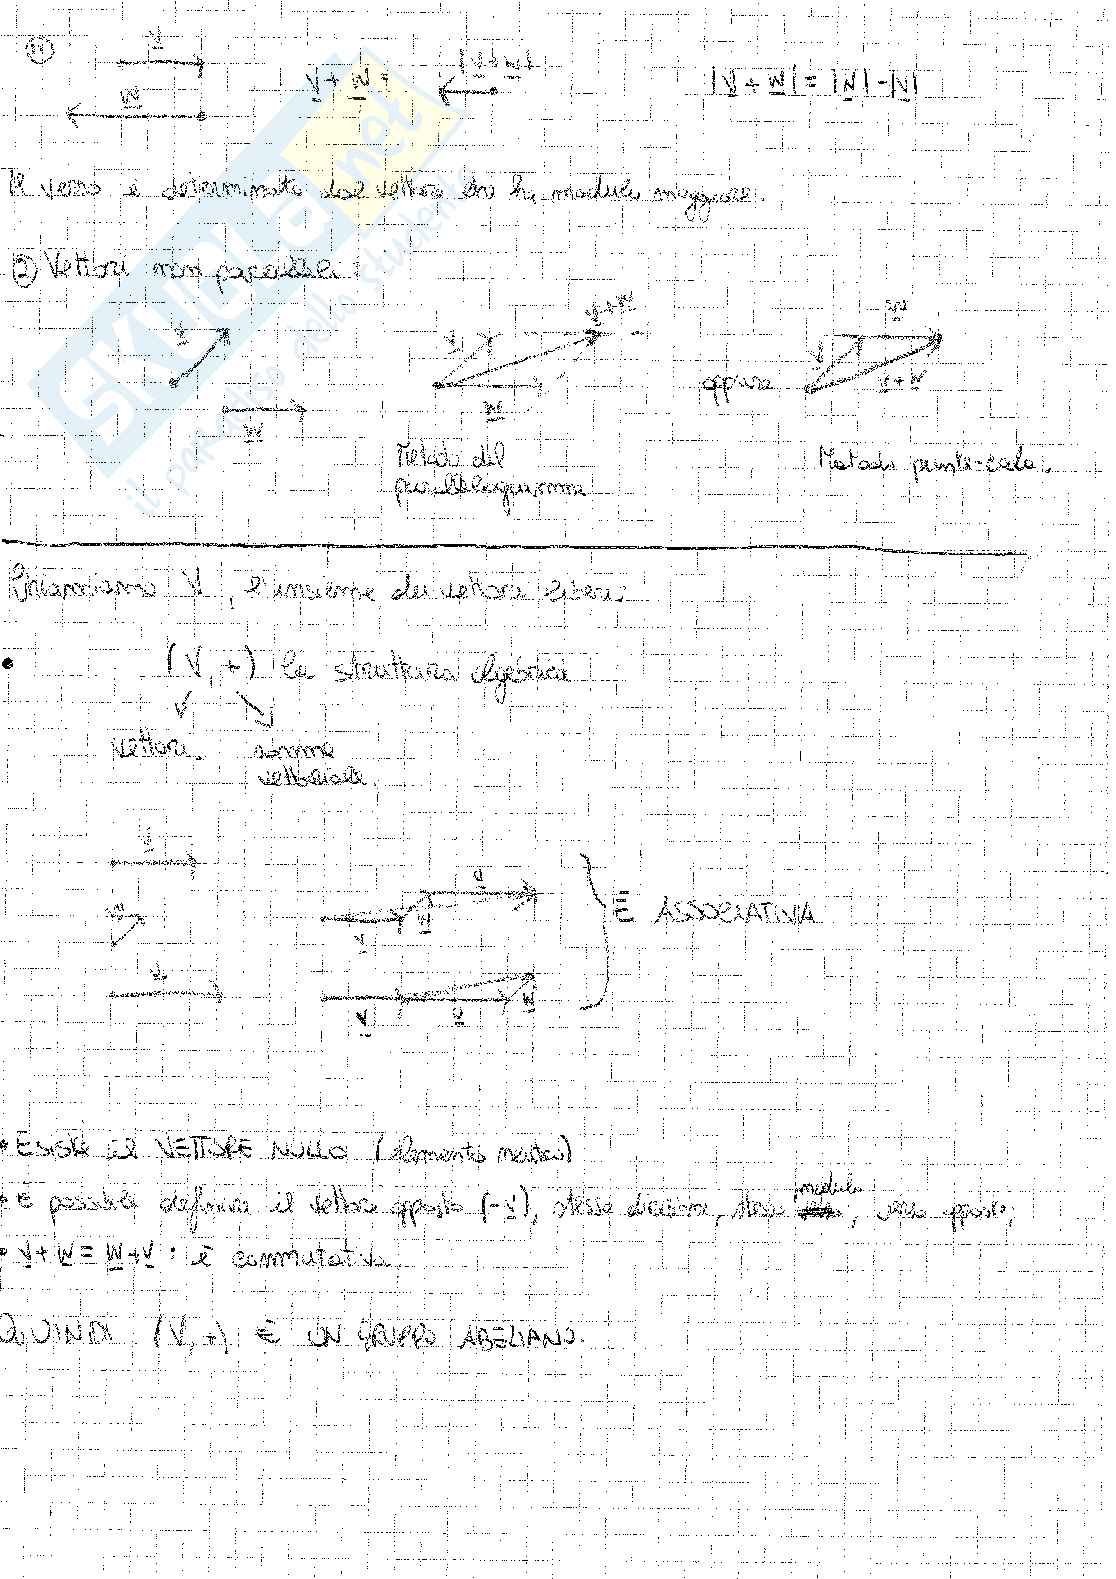 V
V + W =
|V+W|
|V + W| = |W| - |V|
W
Il verso è determinato dal vettore che ha modulo maggiore.
② Vettori non paralleli:
V
W
V
V+W
W
oppure
V
W
V+W
Metodo del
parallelogramma
Metodo punta-coda.
Chiamiamo V, l'insieme dei vettori liberi:
• (V, +) la struttura algebrica
Vettori.
somma
vettoriale.
U
W
V
V
W
U
È ASSOCIATIVA
V
U
W
• Esiste il VETTORE NULLO (elemento neutro)
• È possibile definire il vettore opposto (-V), stessa direzione, stesso modulo, verso opposto;
• V + W = W + V : è commutativa.
QUINDI (V, +) È UN GRUPPO ABELIANO.
SKUOLA.net
il paradiso dello studente